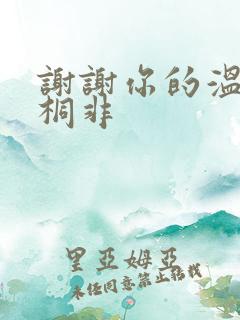 謝謝你的溫
桐非
里亞姆亞
未經同意禁止轉載